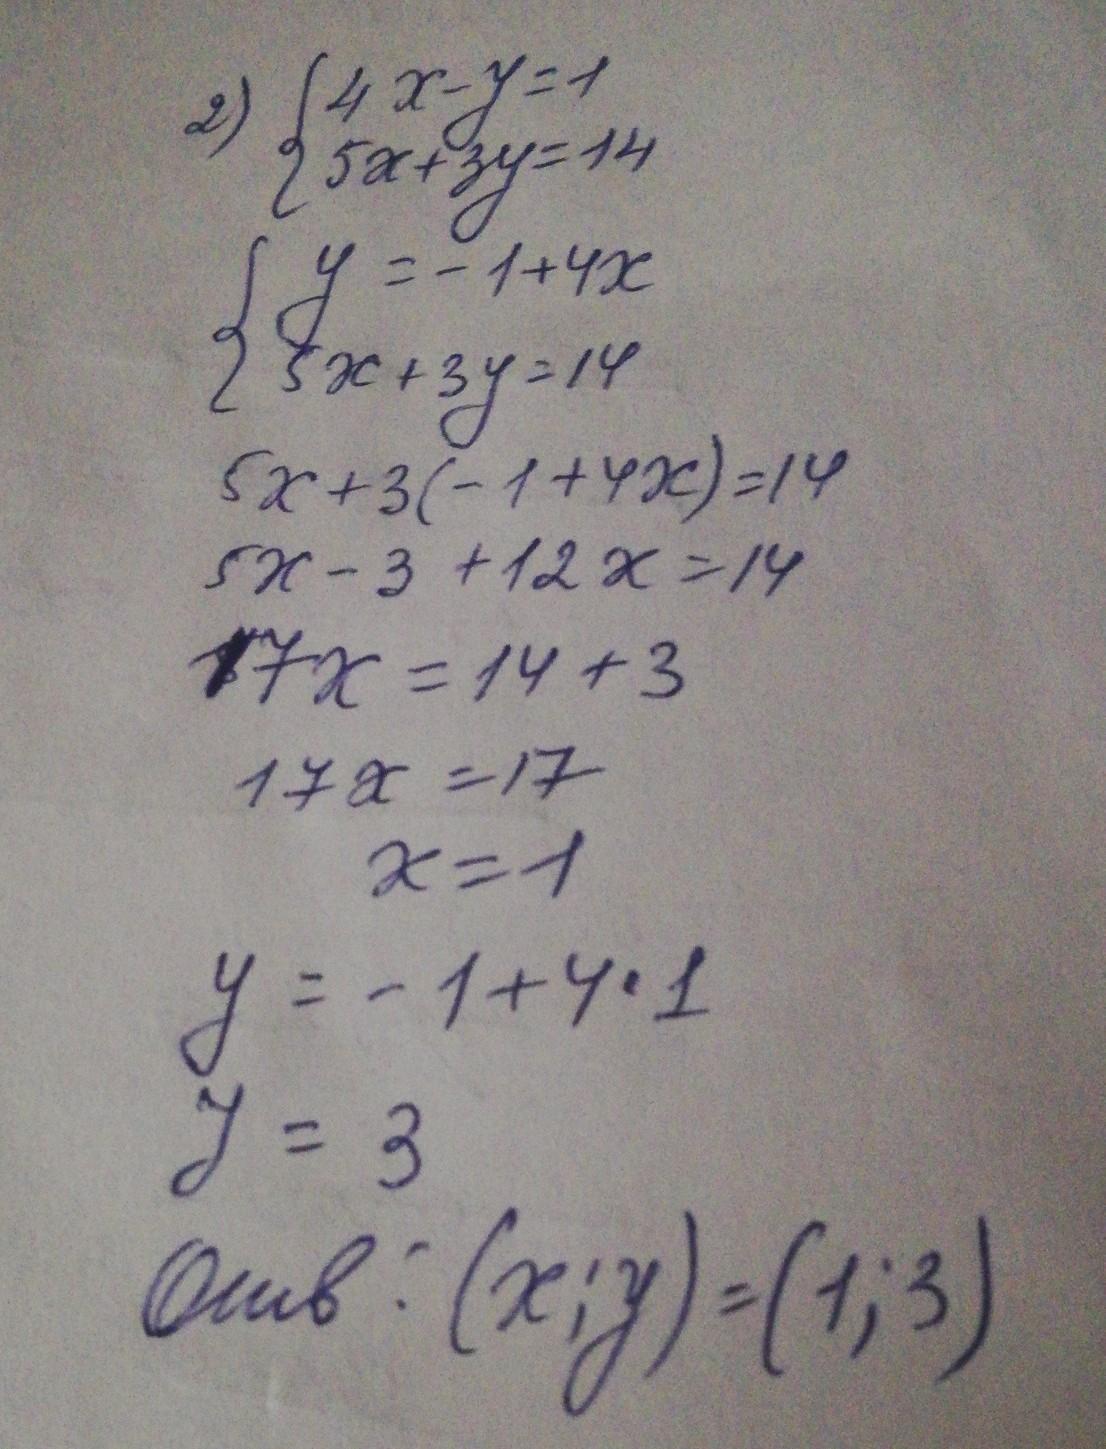 2) { 4x-y=1
5x+3y=14
{ y=-1+4x
5x+3y=14
5x+3(-1+4x)=14
5x-3+12x=14
17x=14+3
17x=17
x=1
y=-1+4·1
y=3
Отв: (x;y)=(1;3)